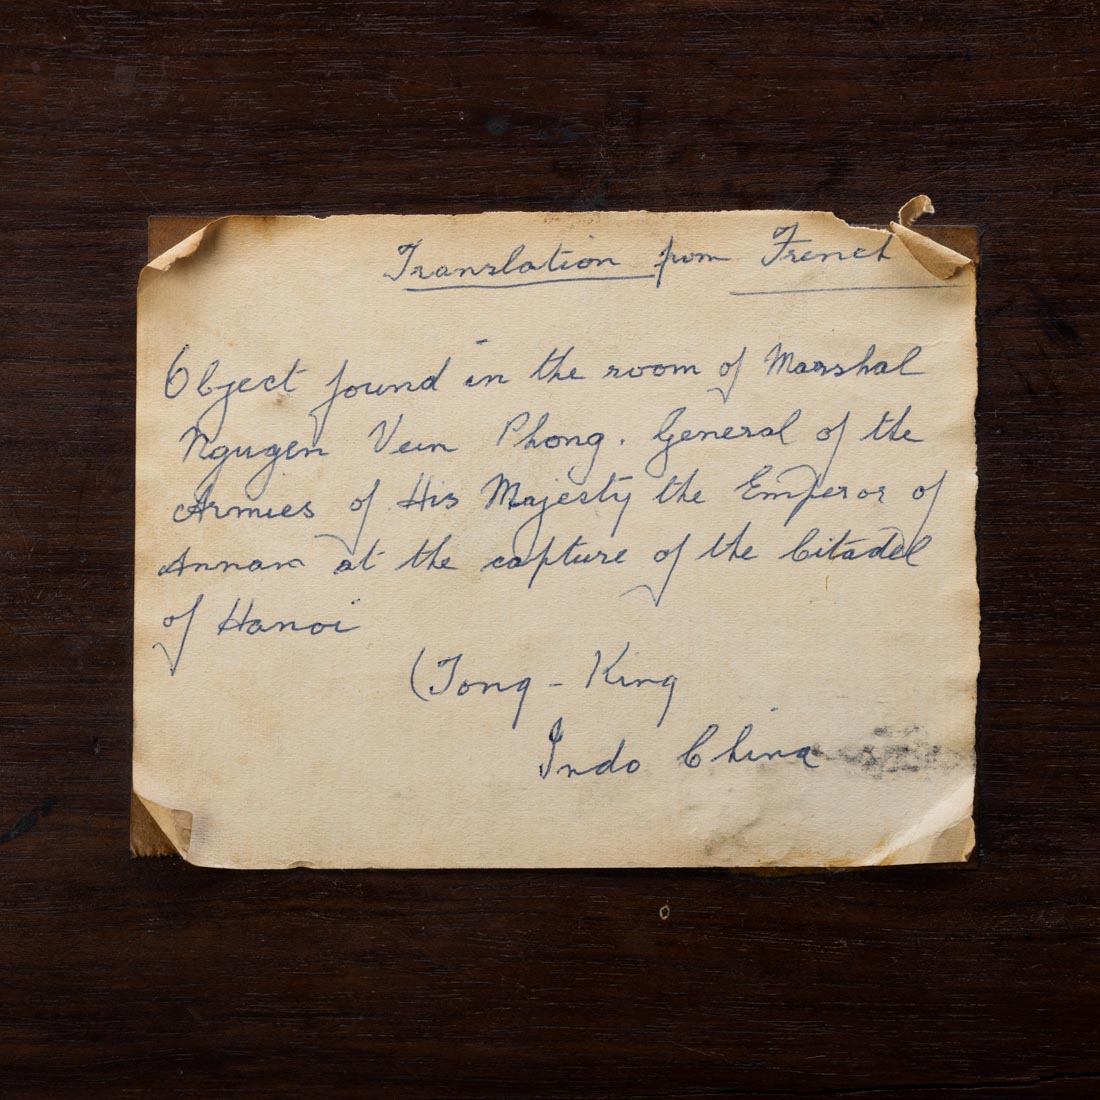 Translation from French
Object found in the room of Marshal
Ngugen Vein Phong. General of the
Armies of His Majesty the Emperor of
Annam at the capture of the Citadel
of Hanoi
(Tong - King
Indo China